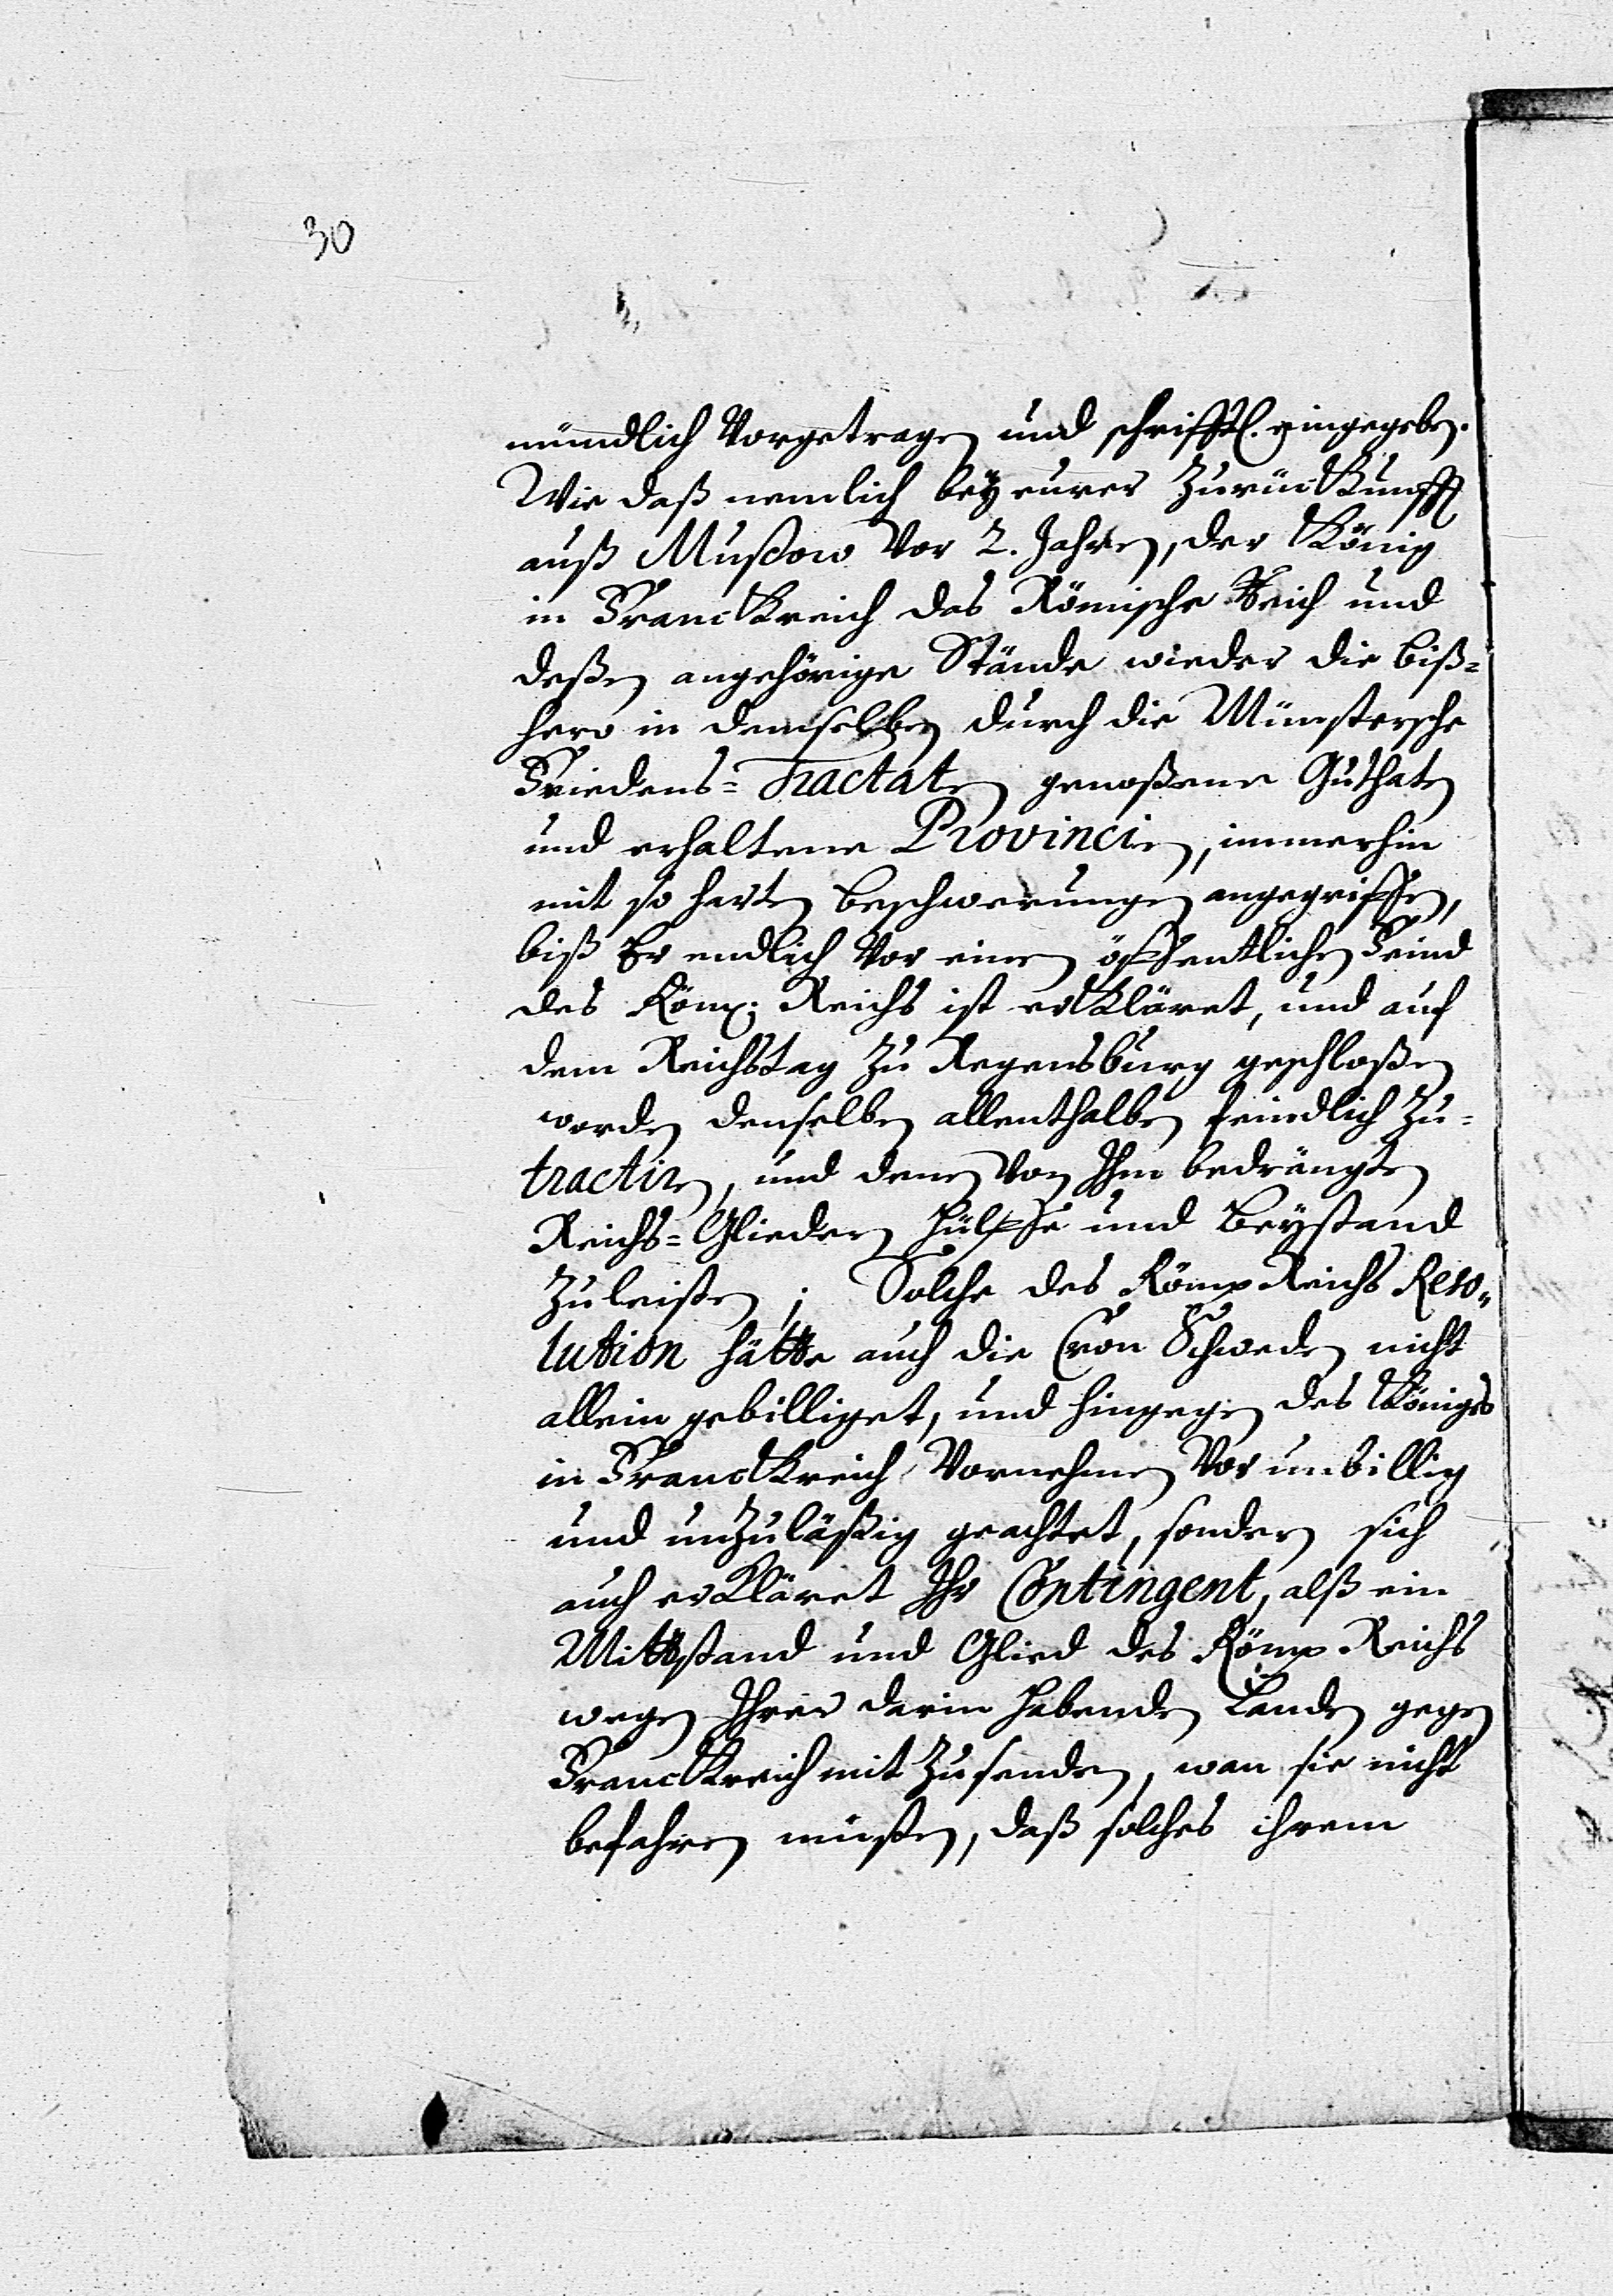 30
mündlich Vorgetragen und schrifftl. eingegeben.
Wie daß nemlich bey eurer ZurücKkunfft
auß Mußcow Vor 2. Jahren, der König
in FrancKreich das Römische Reich und
deßen angehörige Stände wieder die biß=
hero in demselben durch die Münstersche
Friedens=Tractaten genoßene Guthaten
und erhaltene Provincien, immerhin
mit so harten beschwerungen angegriffen,
biß Er endlich Vor einen öffentlichen Feind
des Röm: Reichs ist erKläret, und auf
dem Reichstag Zu Regensburg geschloßen
worden denselben allenthalben feindlich Zu=
tractiren, und denen Von Ihm bedrängten
Reichs=Gliedern Hülffe und Beystand
Zuleisten; Solche des Röm Reichs Reso=
lution hätte auch die Cron Schweden nicht
allein gebilliget, und hingegen des Königs
in FrancKreich Vornehmen Vor unbillig
und unZuläßig geachtet, sondern sich
auch erKläret Ihr Contingent, alß ein
Mittstand und Glied des Röm Reichs
wegen Ihrer darin habenden Landen gegen
FrancKreich mit Zusenden, wan sie nicht
befahren müsten, daß solches ihrem